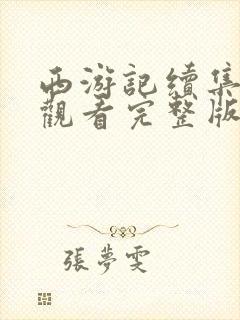 西游記續集
觀看完整版
張夢雯